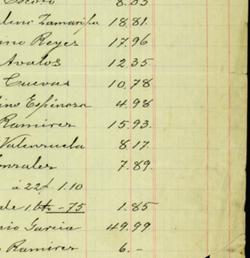 Escoto 8.03
Zamarripa 18.81
Reyes 17.96
Avalos 12.35
Cuevas 10.78
Espinosa 4.98
Ramirez 15.93
Valenzuela 8.17
onzales 7.89
a 22¢ 1.10
75 1.85
Garcia 49.99
Ramirez 6.-